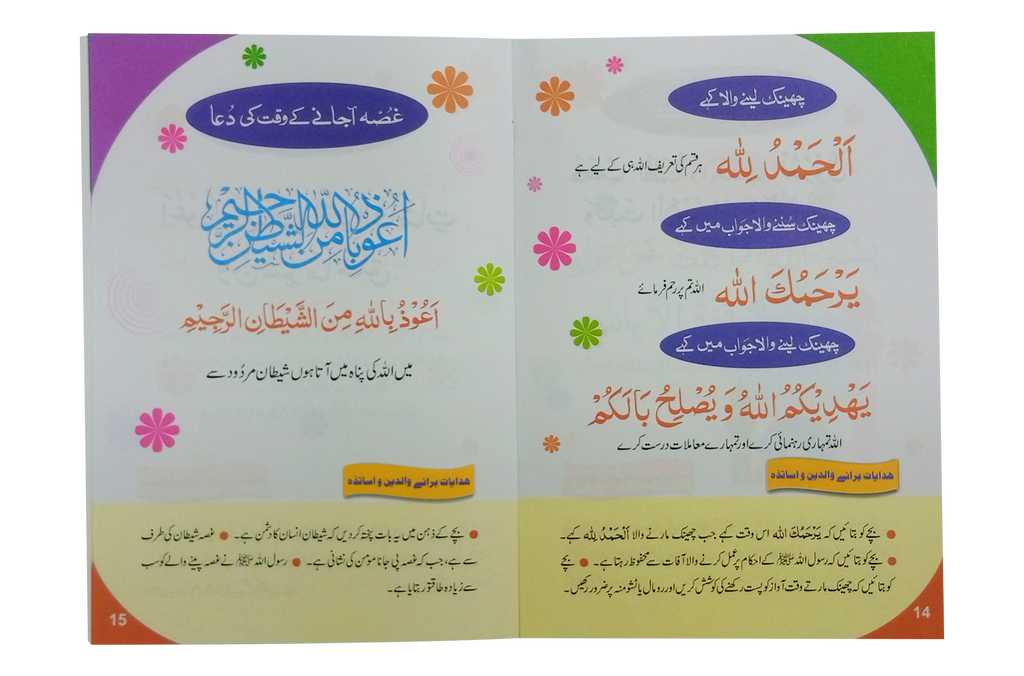 چھینک لینے والا کہے
اَلْحَمْدُ لِلّٰه ہر قسم کی تعریف اللہ ہی کے لیے ہے
چھینک سُننے والا جَواب میں کہے
يَرْحَمُكَ اللّٰه اللہ تم پر رحم فرمائے
چھینک لینے والا جَواب میں کہے
يَهْدِيْكُمُ اللّٰهُ وَ يُصْلِحُ بَالَكُمْ
اللہ تمہاری رہنمائی کرے اور تمہارے معاملات درست کرے
هدایات برائے والدین و اساتذه
● بچے کو بتائیں کہ يَرْحَمُكَ اللّٰه اس وقت کہے جب چھینک مارنے والا اَلْحَمْدُ لِلّٰه کہے۔
● بچے کو بتائیں کہ رسول اللہ ﷺ کے احکام پر عمل کرنے والا آفات سے محفوظ رہتا ہے۔ ● بچے
کو بتائیں کہ چھینک مارتے وقت آواز کو پست رکھنے کی کوشش کریں اور رومال یا ٹشو منہ پر ضرور رکھیں۔
14
غصّہ آجانے کے وقت کی دُعا
اَعُوْذُ بِاللّٰهِ مِنَ الشَّيْطٰنِ الرَّجِيْمِ
اَعُوْذُ بِاللّٰهِ مِنَ الشَّيْطَانِ الرَّجِيْمِ
میں اللہ کی پناہ میں آتا ہوں شیطان مردُود سے
هدایات برائے والدین و اساتذه
● بچے کے ذہن میں یہ بات پختہ کردیں کہ شیطان انسان کا دشمن ہے۔ ● غصہ شیطان کی طرف
سے ہے، جب کہ غصہ پی جانا مومن کی نشانی ہے۔ ● رسول اللہ ﷺ نے غصہ پینے والے کو سب
سے زیادہ طاقتور بتایا ہے۔
15